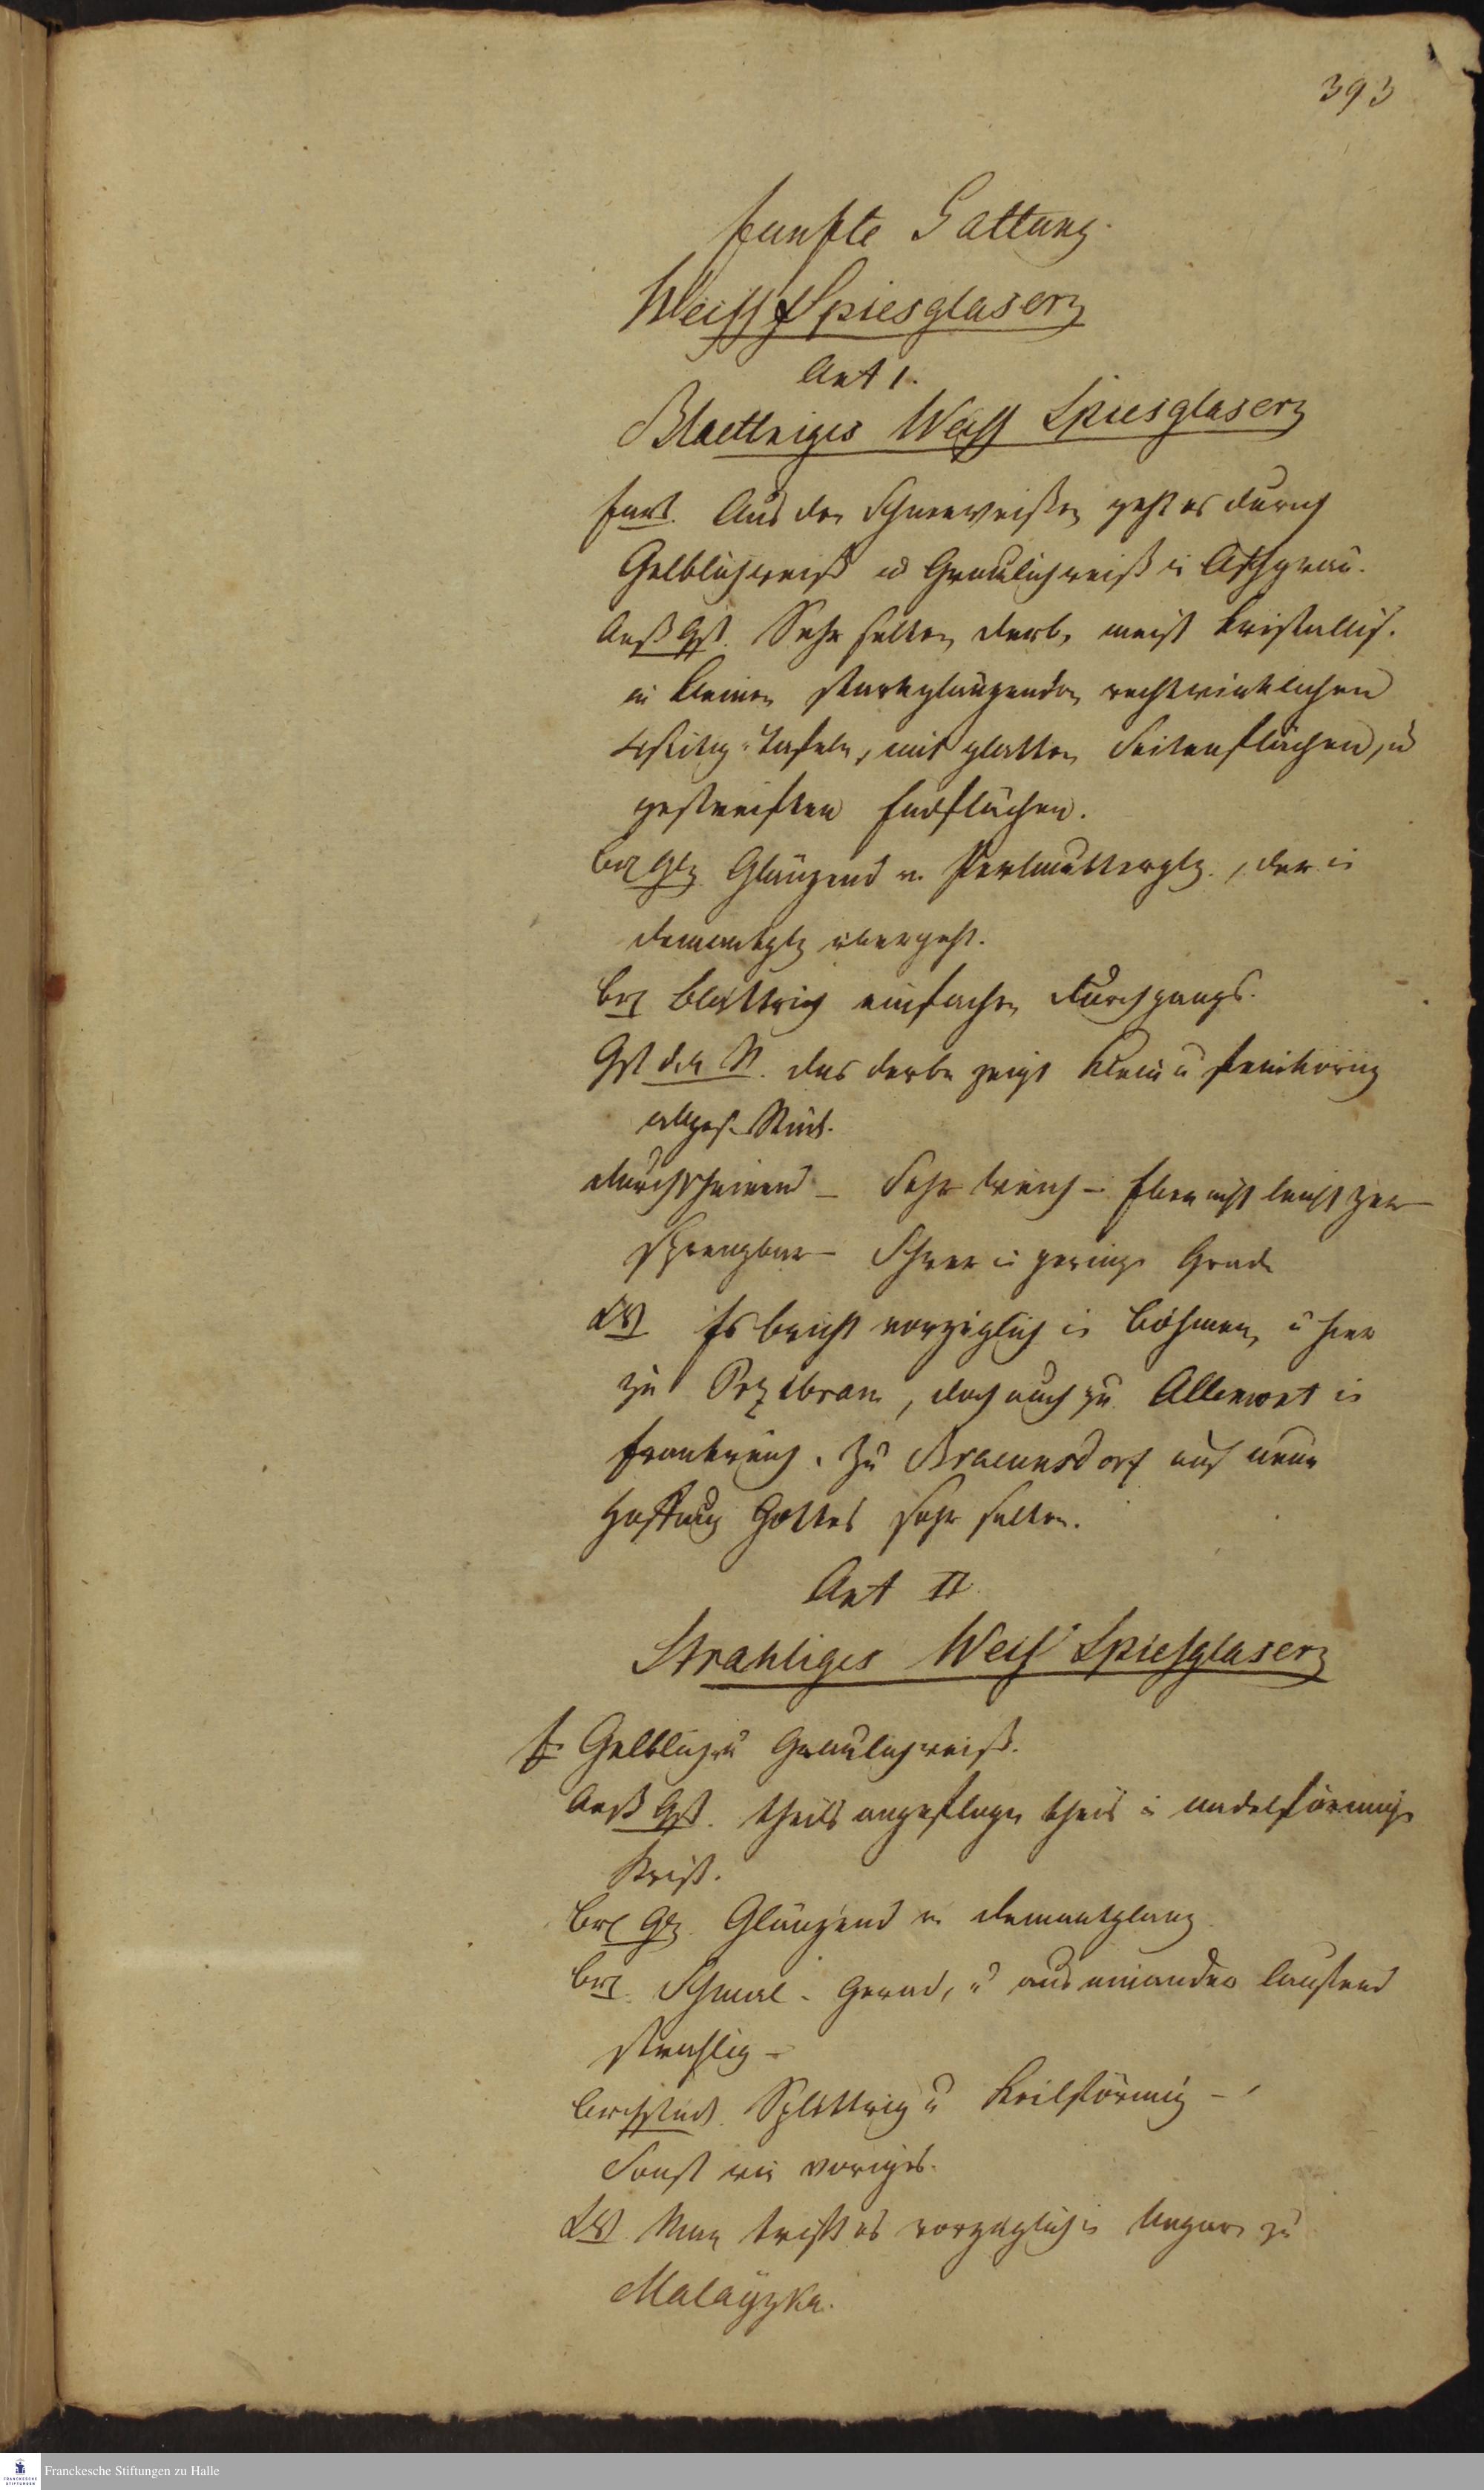 393
funfte Gattung.
Weiss Spiesglaserz
Art 1.
Blaettriges Weiss Spiesglaserz
Farb. Aus den Schneeweißen geht es durch
Gelblichweiß u Graulichweiß in Aschgrau.
Aeß Gst. Sehr selten derb, meist kristallis.
in kleinen starkglänzenden rechtwinklichen
4seitig. Tafeln, mit glatten Seitenflächen, u
gestreiften Endflächen.
Br Glz Glänzend v. Perlmutterglz., der in
demantglz übergeht.
Br blättrig einfachen Durchgangs.
Gst der St. das derbe zeigt klein u feinkörnig
abges. Stück.
durchscheinend – Sehr weich – Eben nicht leicht zer-
sprengbar – Schwer in geringe Grade
Es bricht vorzüglich in Böhmen, u hier
zu Przibram, doch auch zu Allemont in
Frankreich. Zu Braeunsdorf auf neue
Hoffnug Gottes sehr selten.
Art II
Strahliges Weis Spiesglaserz
F Gelblich u Graulichweiß.
Aeß Gst. theils angeflogen theils in nadelförmige
Krist.
Br Glz. Glänzend v. demantglanz
Br. Schmal – Gerad, u aus einander laufend
strahlig –
Brchstück Splittrig u keilförmig –
Sonst wie voriges.
Man trift es vorzüglich in Ungarn zu
Malaÿzka.
Franckesche Stiftungen zu Halle
FRANCKESCHE
STIFTUNGEN